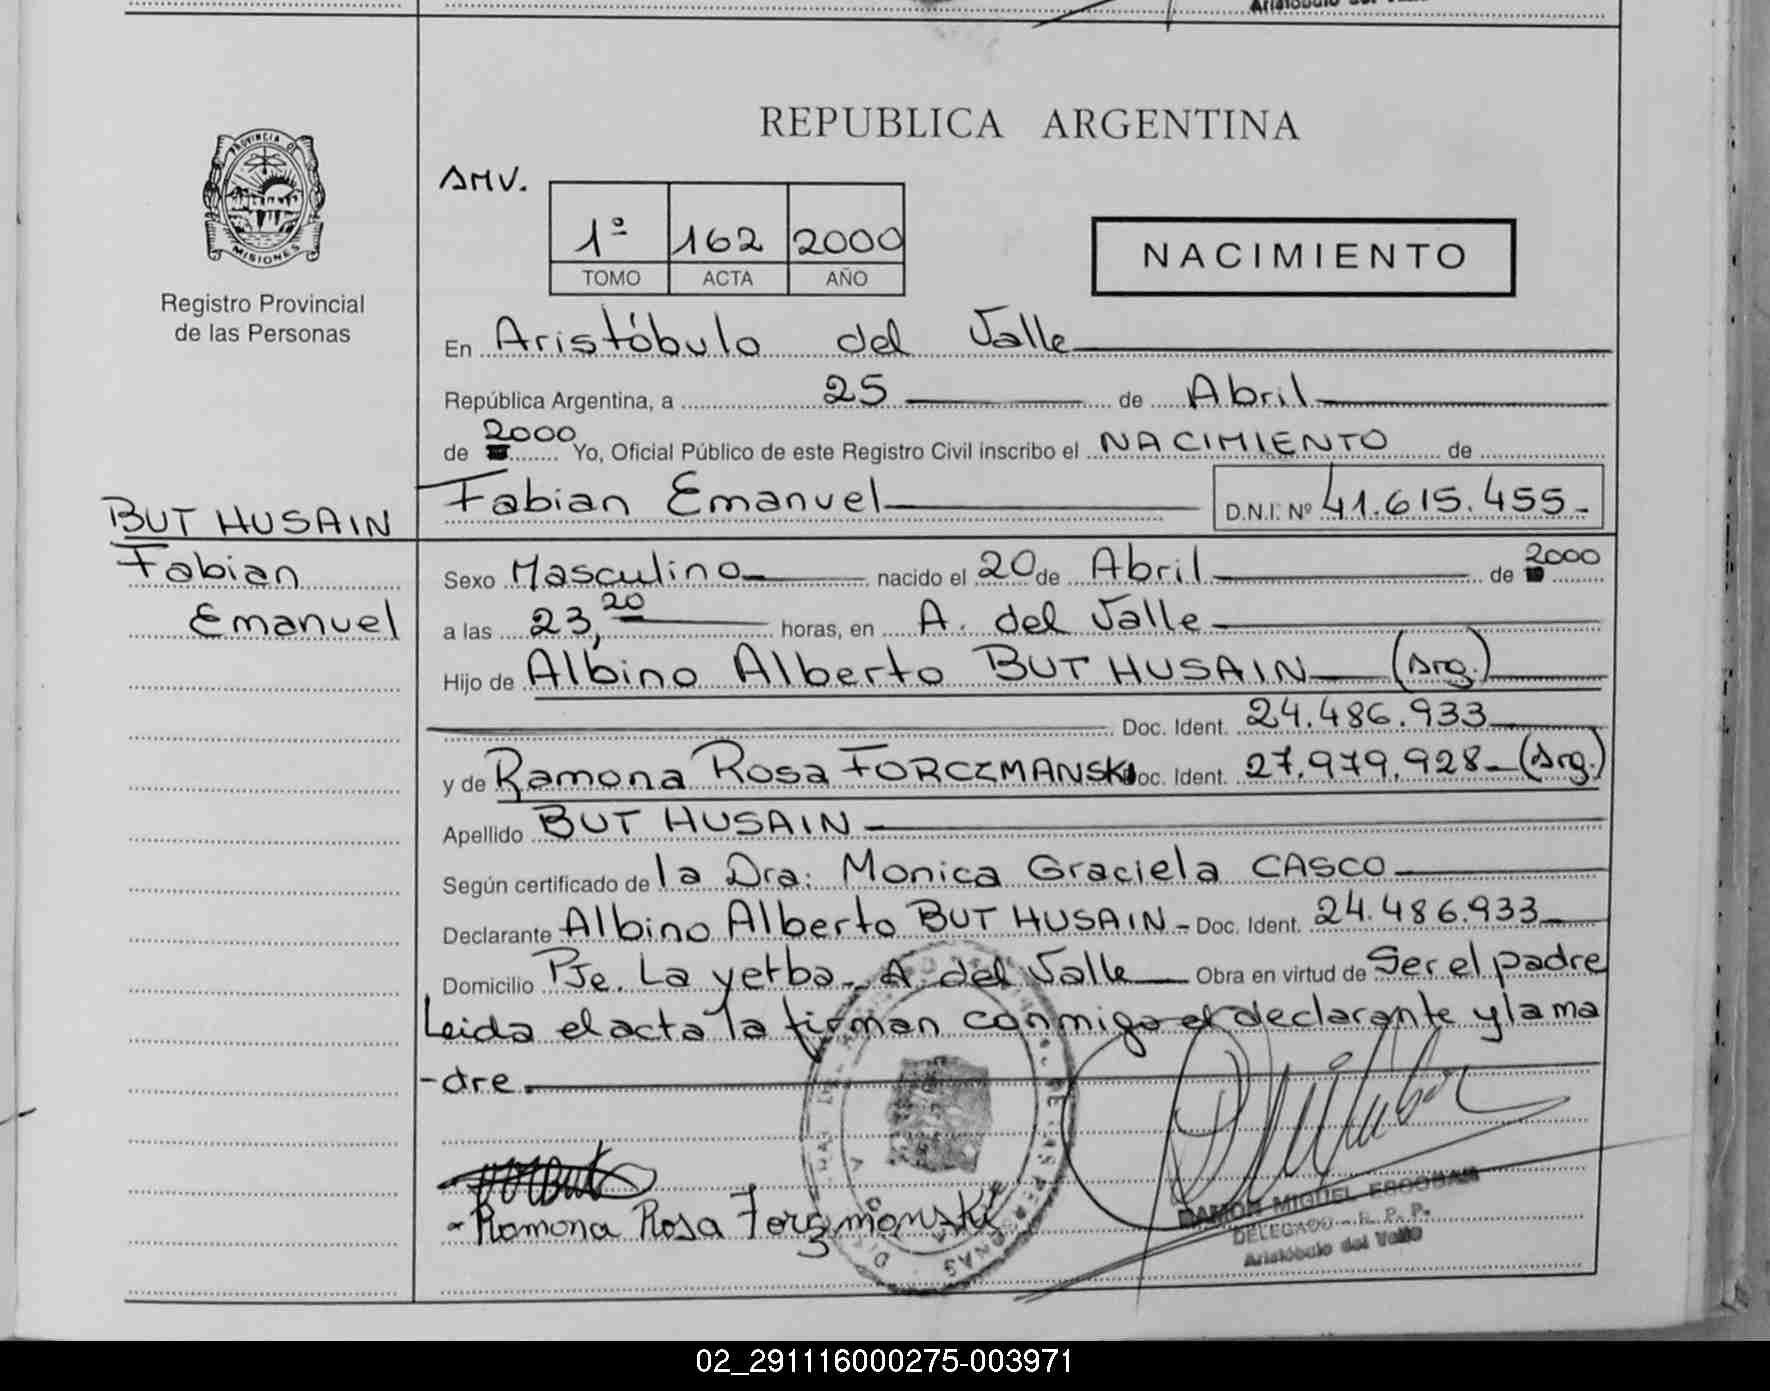 REPUBLICA ARGENTINA
PROVINCIA DE
MISIONES
Registro Provincial
de las Personas
AMV.
1º 162 2000
TOMO ACTA AÑO
NACIMIENTO
En Aristóbulo del Valle
República Argentina, a 25 de Abril
de 2000 Yo, Oficial Público de este Registro Civil inscribo el NACIMIENTO de
Fabian Emanuel D.N.I. Nº 41.615.455-
BUT HUSAIN
Fabian
Emanuel
Sexo Masculino nacido el 20 de Abril de 2000
a las 23,20 horas, en A. del Valle
Hijo de Albino Alberto BUT HUSAIN (Arg.)
Doc. Ident. 24.486.933
y de Ramona Rosa FORCZMANSKI Doc. Ident. 27.979.928 - (Arg.)
Apellido BUT HUSAIN
Según certificado de la Dra: Monica Graciela CASCO
Declarante Albino Alberto BUT HUSAIN - Doc. Ident. 24.486.933
Domicilio Pje. La yerba - A. del Valle Obra en virtud de Ser el padre
Leida el acta la firman conmigo el declarante y la ma
-dre.
Ramona Rosa Forczmanski
RAMON MIGUEL ESCOBAR
DELEGADO R. P. P.
Aristóbulo del Valle
02_291116000275-003971